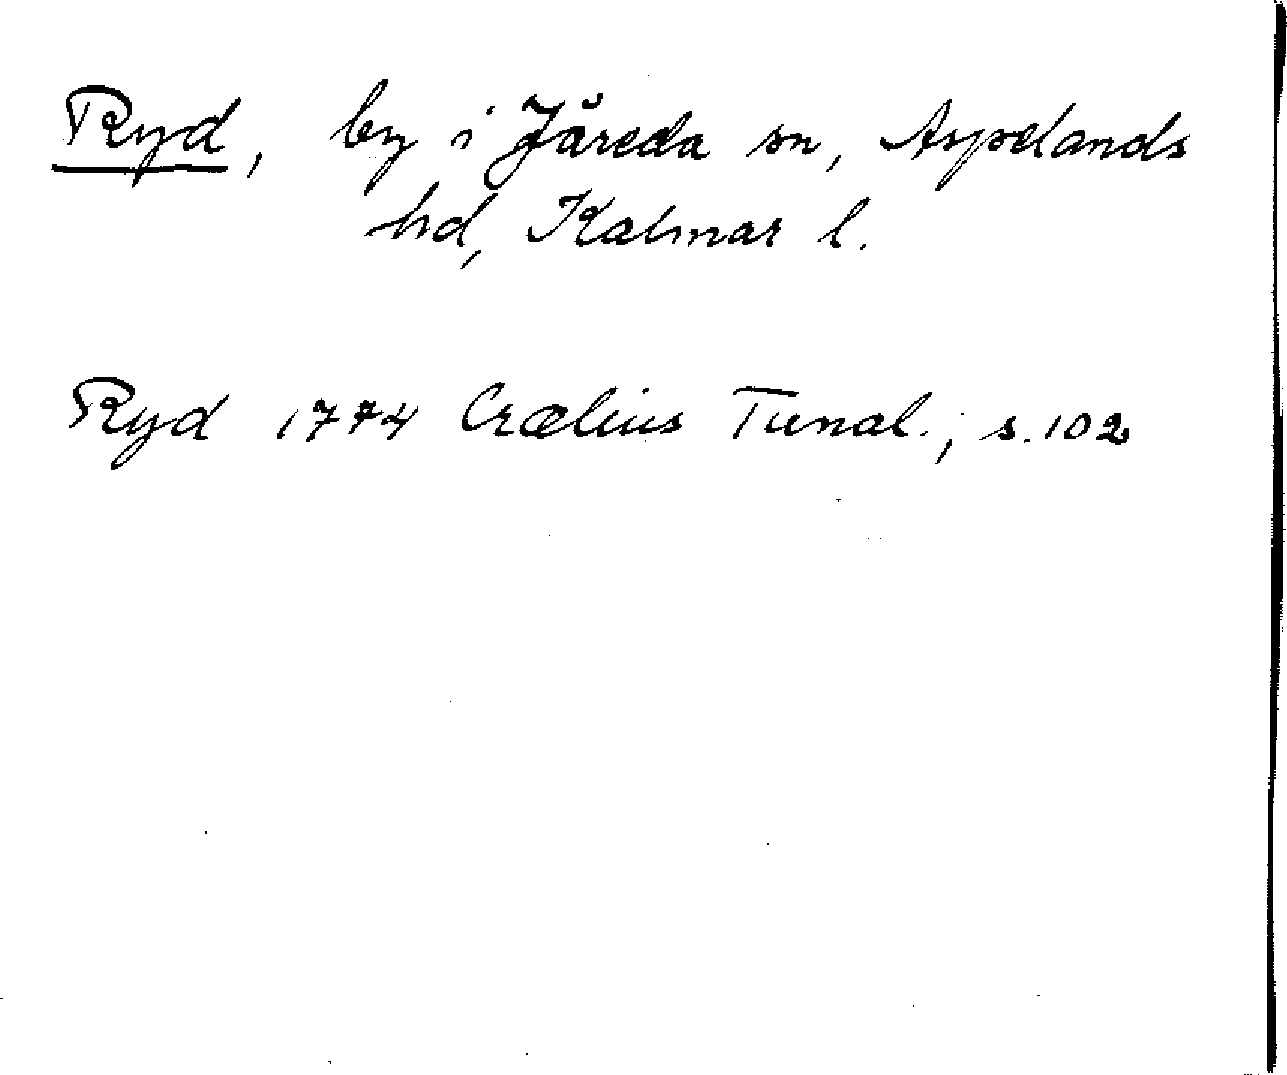 Ryd, by i Järeda sn, Aspelands
hd, Kalmar l.
Ryd 1774 Crælius Tunal., s. 102